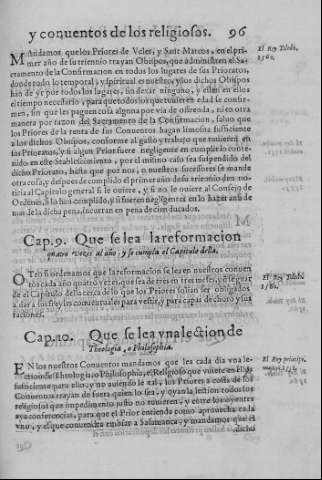 y conuentos de los religiosos. 96
MAndamos, que los Priores de Vcles, y Sant Marcos, en el pri-
mer año de su triennio trayan Obispos, que administren el Sa-
cramento de la Confirmacion en todos los lugares de sus Prioratos,
donde todo lo temporal y spiritual es nuestro, y los dichos Obispos
han de yr por todos los lugares, sin dexar ninguno, y esten en ellos
el tiempo necessario, para que todos los que tuuieren se con-
firmen, sin que les paguen cosa alguna por via de ofrenda, ni en otra
manera por razon del Sacramento de la Confirmacion, saluo que
los Priores de la renta de sus Conuentos hagan limosna sufficiente
a los dichos Obispos, conforme al gusto y trabajo que tuuieren en
los Prioratos, y si algun Prior fuere negligente en cumplir lo conte-
nido en este Establescimiento, por el mismo caso sea suspendido del
dicho Priorato, hasta que por nos, o nuestros successores se mande
otra cosa, y despues de cumplido el primer año de su triennio den no-
ticia al Capitulo general si le ouiere, y si no le ouiere al Consejo de
Ordenes, si lo han cumplido, y si fueren negligentes en lo hazer
mas de la dicha pena, incurran en pena de cien ducados.
El Rey
1560.
Cap. 9. Que se lea la reformacion
quatro vezes al año, y se cumpla el Capitulo della.
OTrosi ordenamos que la reformacion se lea en nuestros conuen
tos cada año quatro vezes, que sea de tres en tres meses, y si se
de el Capitulo della cerca de lo que los Priores estan ser obligados
a dar a sus freyles conuentuales para vestir, y para capas de choro y sus
raciones.
El Rey
Cap. 10. Que se lea vna lection de
Theologia, o Philosophia.
EN los nuestros Conuentos mandamos que lea cada dia vna le-
ction de Theologia, o Philosophia, el Religioso que vuiere en ellos
sufficiente para ello, y no auiendo le tal, los Priores a costa de los
Conuentos trayan de fuera quien los lea, y oyan la lection todos los
religiosos que impedimento justo no tuuieren, y entre los oyentes
aya conferencias, para que el Prior entienda como aprouecha cada
vno, y el que conuenga embiar a Salamanca, y mandamos que el
dicho
El Rey